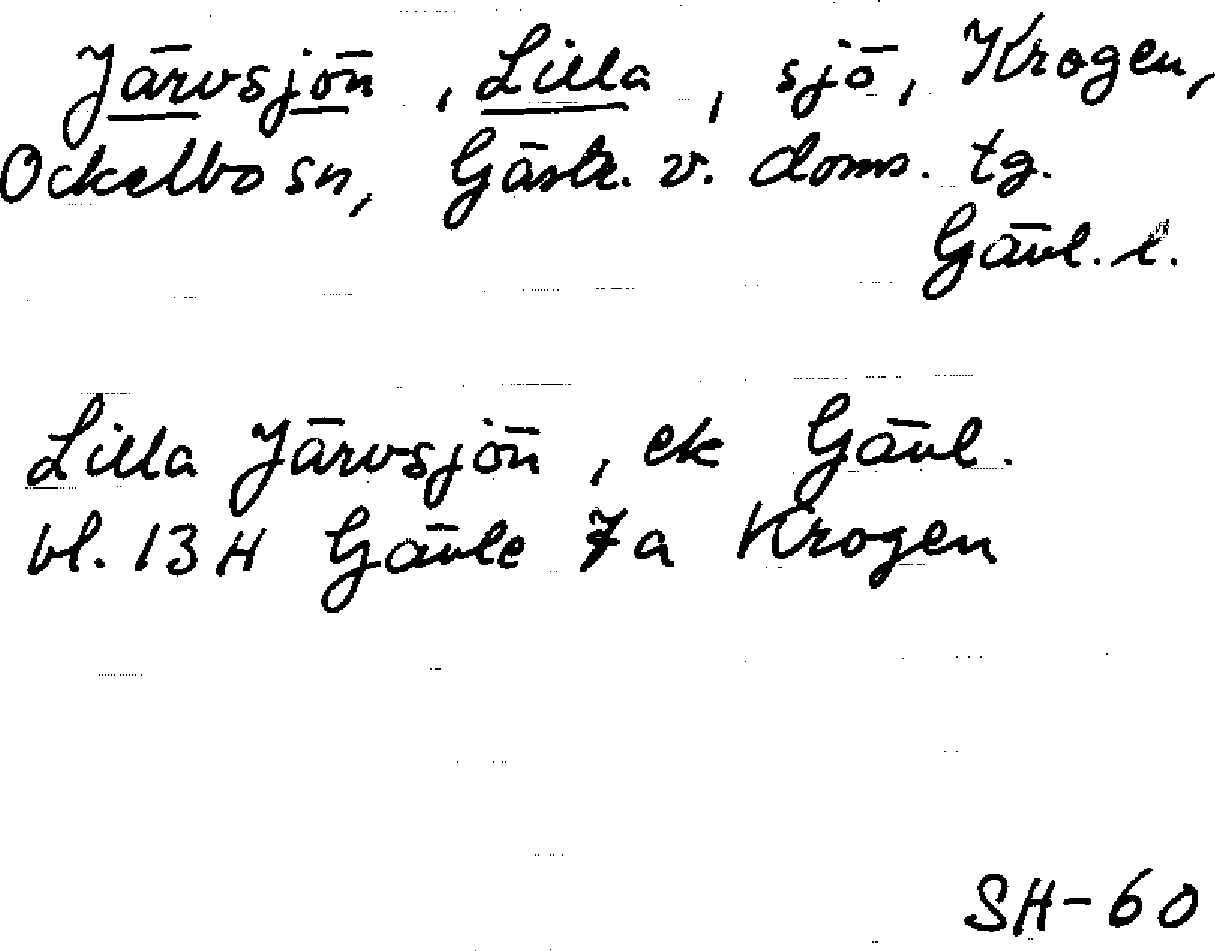 Järvsjön, Lilla, sjö, Krogen,
Ockelbo sn, Gästr. v. doms. tg.
Gävl. l.
Lilla Järvsjön, ek Gävl.
bl. 13 H Gävle 7a Krogen
SH-60